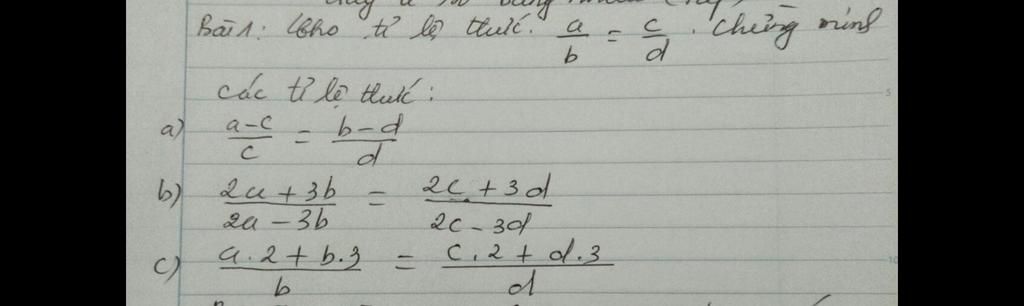 Bài 1: Cho tỉ lệ thức. a/b = c/d. Chứng minh
các tỉ lệ thức:
a) (a-c)/c = (b-d)/d
b) (2a+3b)/(2a-3b) = (2c+3d)/(2c-3d)
c) (a.2+b.3)/b = (c.2+d.3)/d